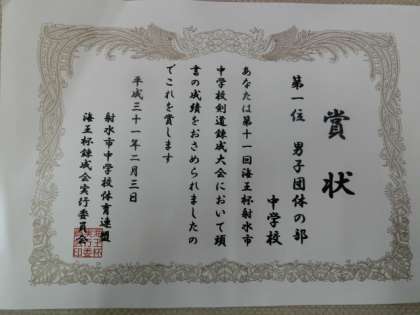 賞状
第一位 男子団体の部
中学校
あなたは第十一回海王杯射水市
中学校剣道錬成大会において頭
書の成績をおさめられましたの
でこれを賞します
平成三十一年二月三日
射水市中学校体育連盟
海王杯錬成会実行委員会